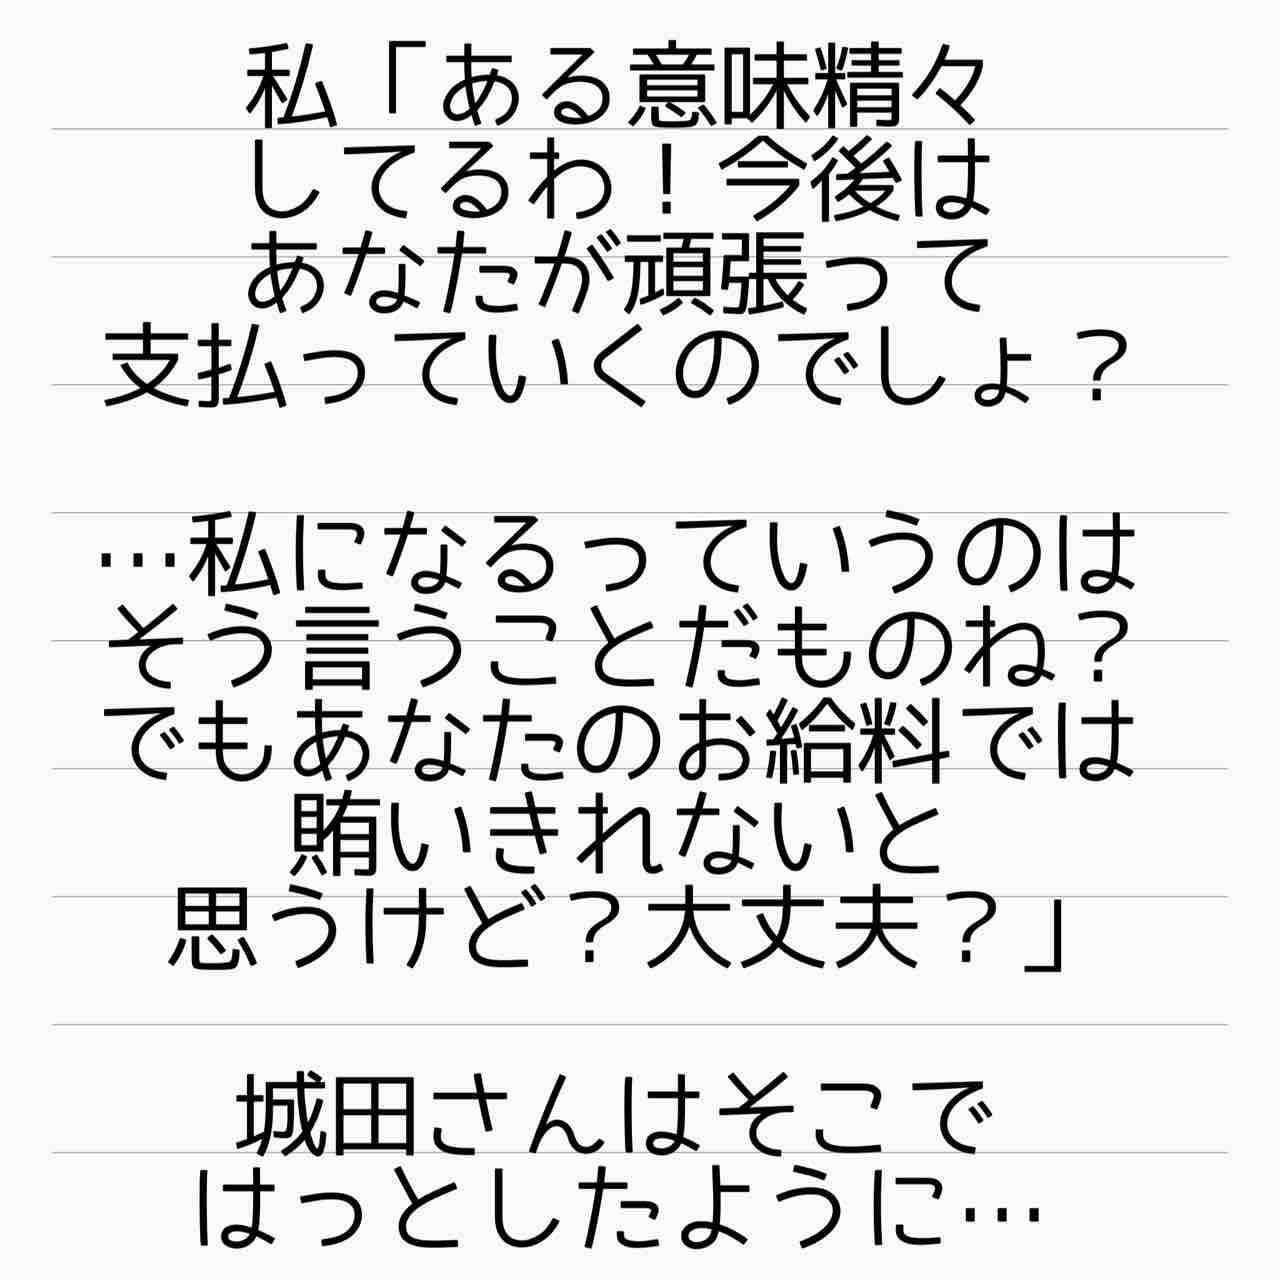 私「ある意味精々
してるわ！今後は
あなたが頑張って
支払っていくのでしょ？
…私になるっていうのは
そう言うことだものね？
でもあなたのお給料では
賄いきれないと
思うけど？大丈夫？」
城田さんはそこで
はっとしたように…